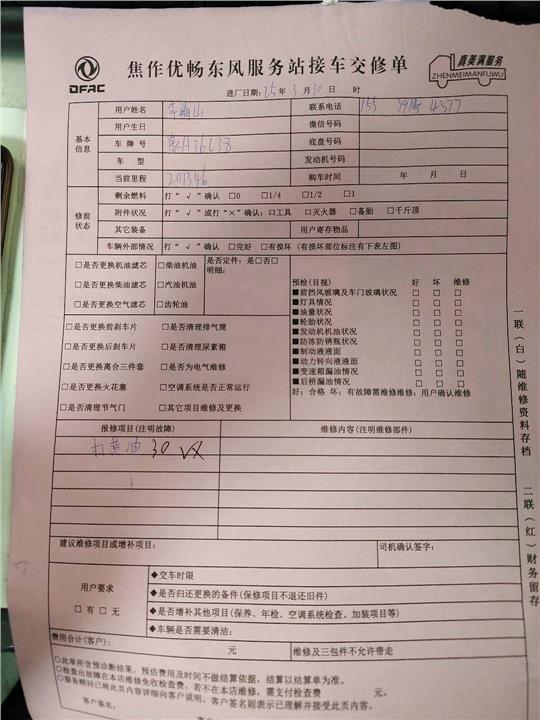 DFAC
焦作优畅东风服务站接车交修单
真美满服务
ZHENMEIMANFUWU
进厂日期:25年3月30日 时
基本信息
用户姓名
联系电话 155
用户生日 微信号码
车牌号 底盘号码
车型 发动机号码
当前里程 201346 购车时间 年 月 日
修前状态
剩余燃料 打“√”确认 □0 □1/4 □1/2 □1
附件状况 打“√”或打“×”确认:□工具 □灭火器 □备胎 □千斤顶
其它装备 用户寄存物品
车辆外部情况 打“√”确认 □完好 □有损坏(有损坏部位标注有下表左图)
□是否更换机油滤芯 □柴油机油 是否定件:是□否□
□是否更换柴油滤芯 □汽油机油 明细:
□是否更换空气滤芯 □齿轮油
□是否更换前刹车片 □是否清理排气筒
□是否更换后刹车片 □是否清理尿素箱
□是否更换离合三件套 □是否为电气维修
□是否更换火花塞 □空调系统是否正常运行
□是否清理节气门 □其它项目维修及更换
预检(目视) 好 坏 维修
■前挡风玻璃及车门玻璃状况 □ □ □
■灯具情况 □ □ □
■油量状况 □ □ □
■轮胎状况 □ □ □
■发动机机油状况 □ □ □
■防冻防锈瓶状况 □ □ □
■制动液液面 □ □ □
■动力转向液液面 □ □ □
■变速箱漏油情况 □ □ □
■后桥漏油情况 □ □ □
好:合格 坏:有故障需维修维修:用户确认维修
报修项目(注明故障) 维修内容(注明维修部件)
打黄油 30
建议维修项目或增补项目: 司机确认签字:
用户要求
□有 □无
◆交车时限
◆是否归还更换的备件(保修项目不退还旧件)
◆是否增补其他项目(保养、年检、空调系统检查、加装项目等)
◆车辆是否需要清洁:
费用合计(客户): 元 维修及三包件不允许带走
○此单所含预诊断结果,预估费用及时间不做结算依据,结算以结算单为准。
○检查出故障在本店维修免收检查费,若不在本店维修,需支付检查费 元。
○服务顾问已将此页内容详细向客户说明,客户签名则表示已理解并接受此页内容。
客户签名:
一联(白)随维修资料存档 二联(红)财务留存